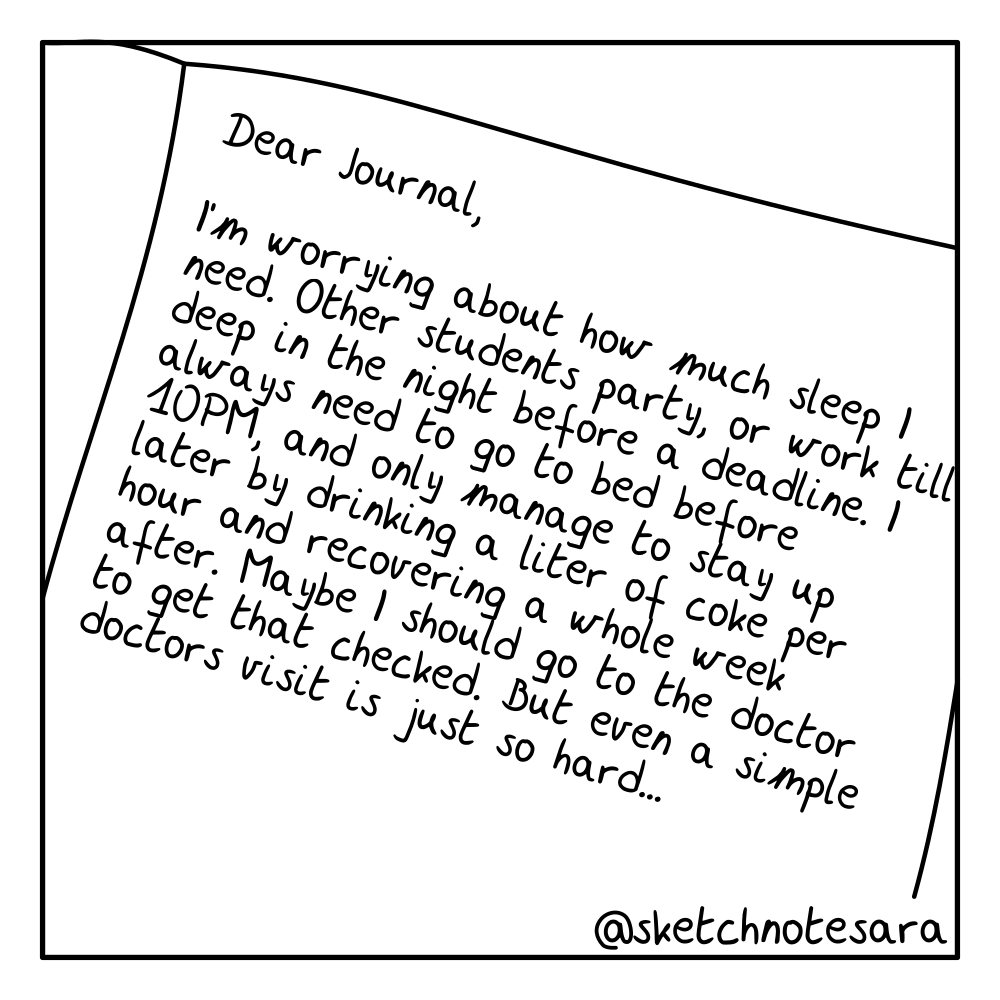 Dear Journal,
I'm worrying about how much sleep I
need. Other students party, or work till
deep in the night before a deadline. I
always need to go to bed before
10PM, and only manage to stay up
later by drinking a liter of coke per
hour and recovering a whole week
after. Maybe I should go to the doctor
to get that checked. But even a simple
doctors visit is just so hard...
@sketchnotesara